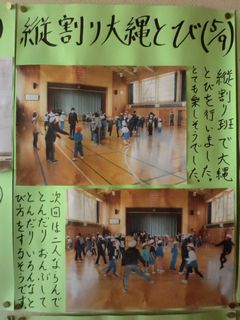 縦割り大縄とび(5/9)
縦割り班で大縄
とびを行いました。
とても楽しそうでした。
次回は二人ならんで
とんだり、おんぶして
とんだり、いろんなと
び方をするそうです。